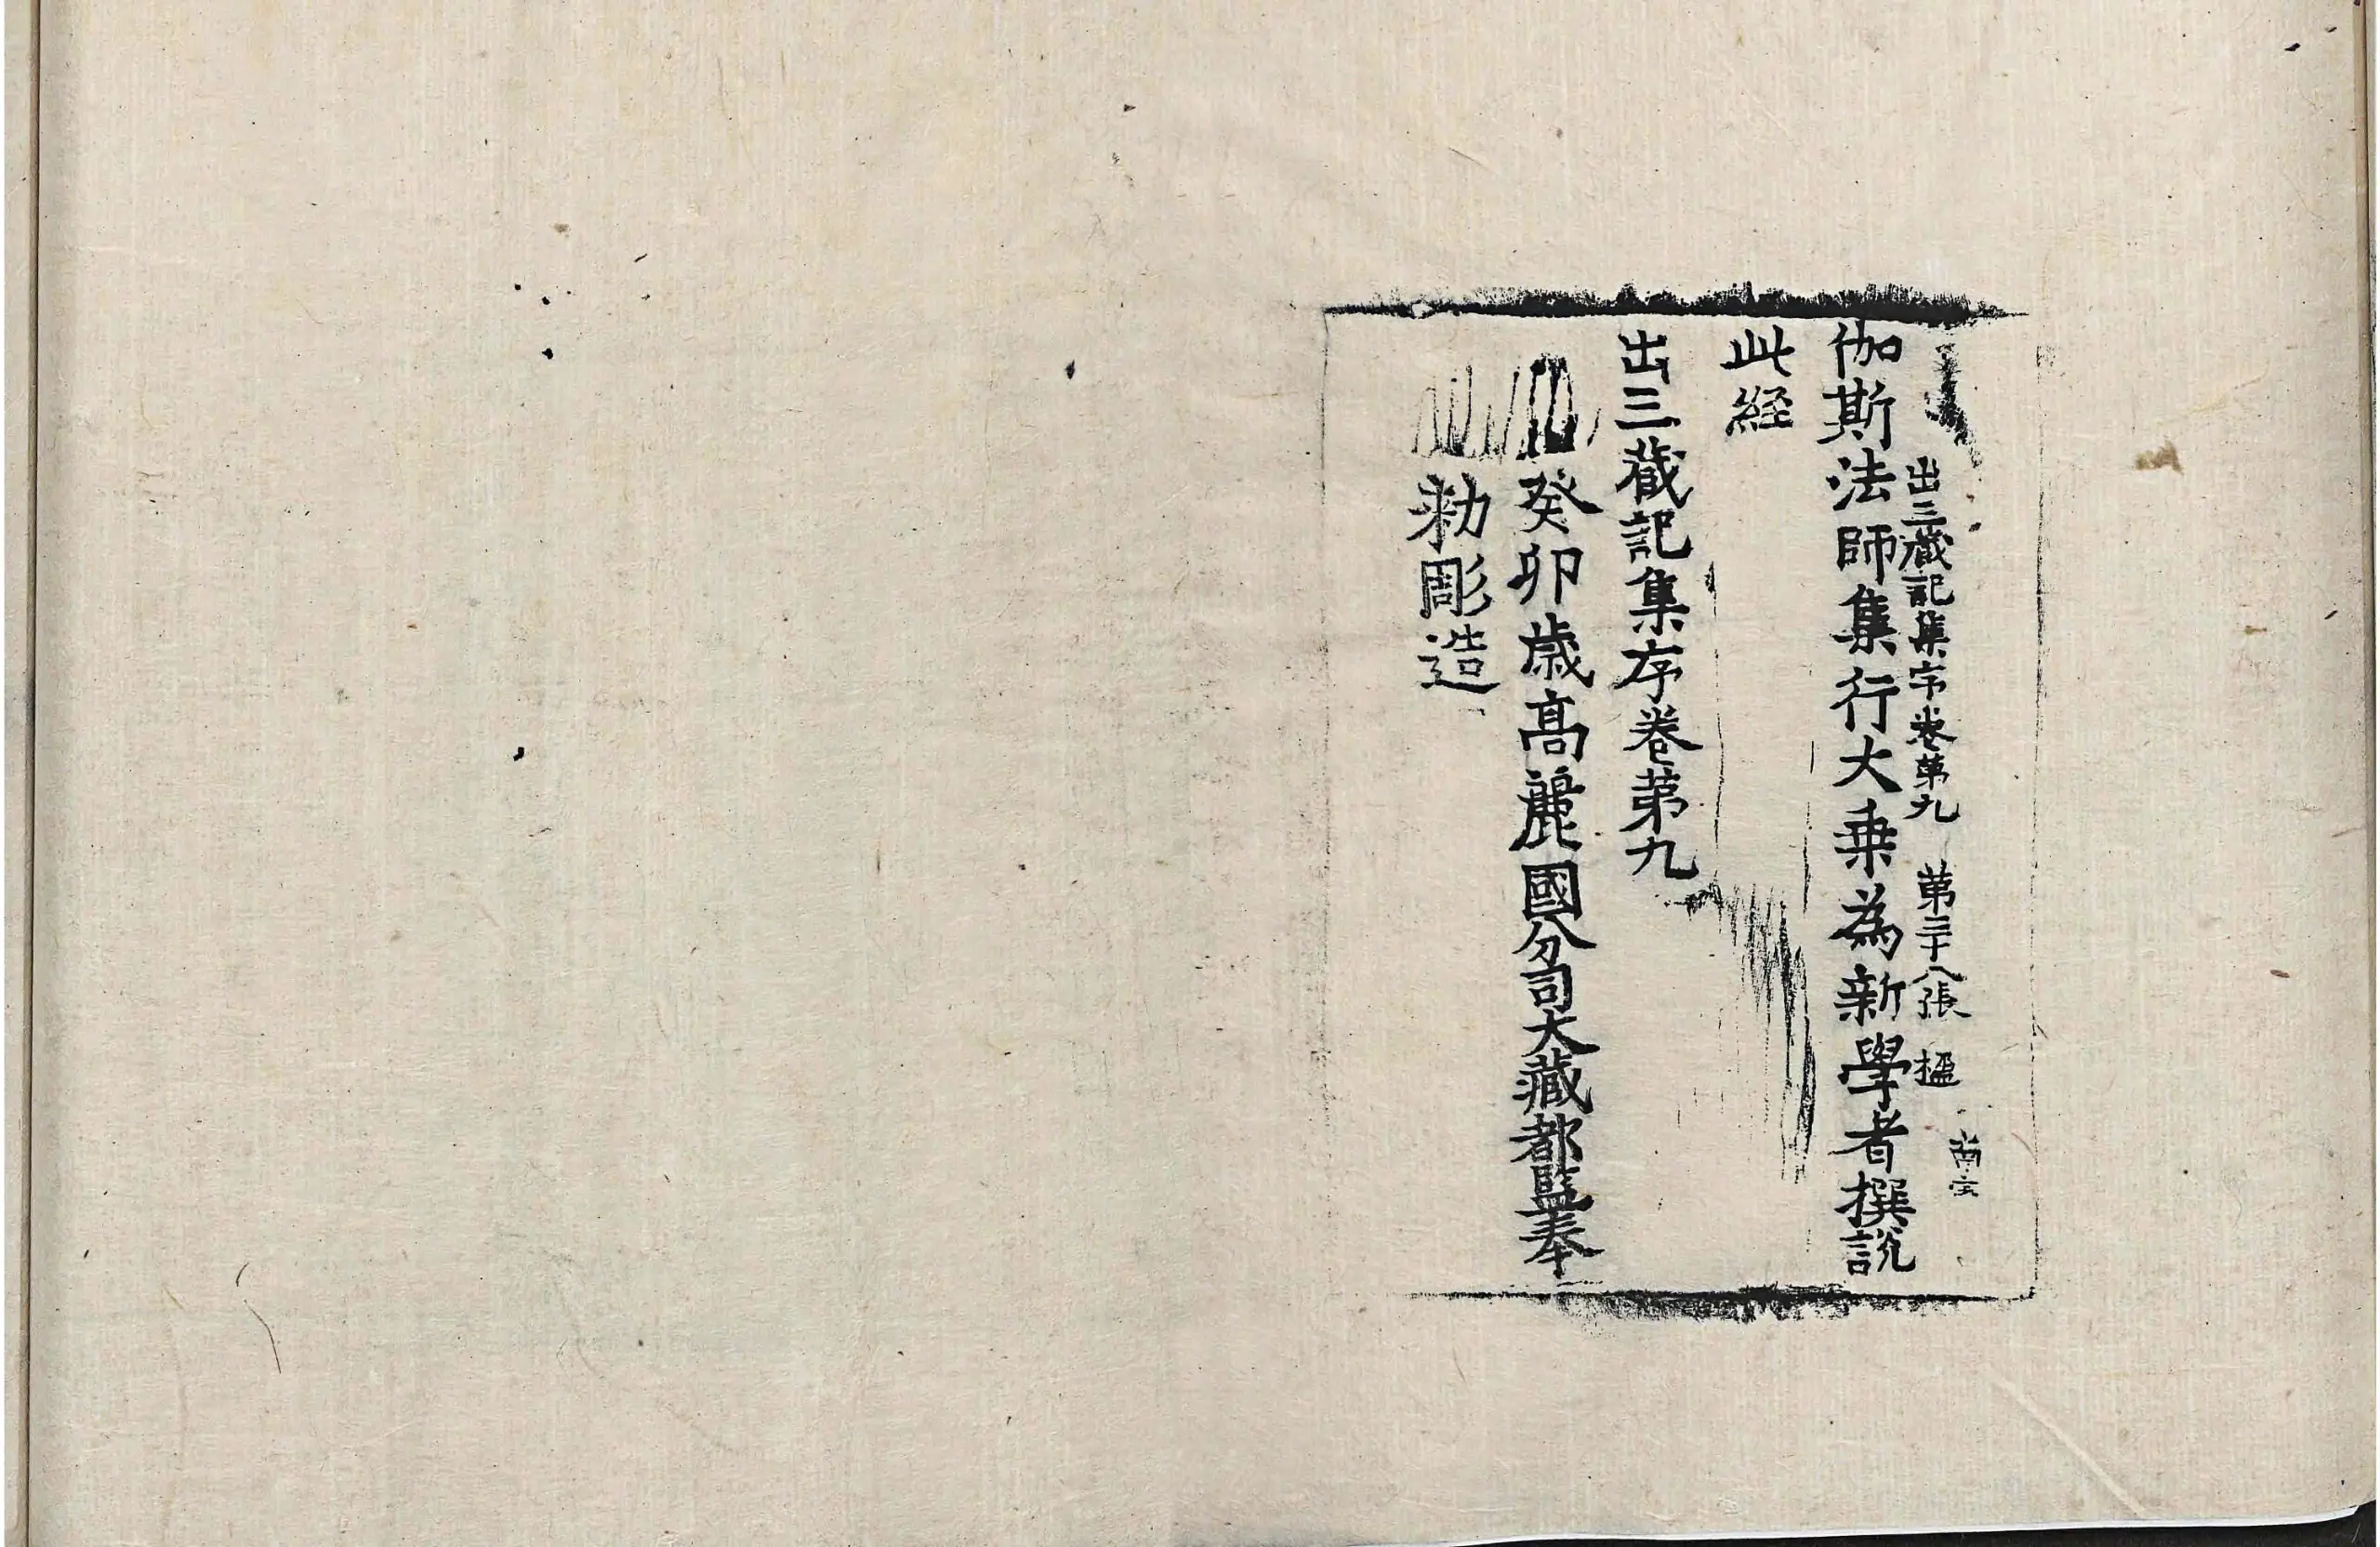 出三藏記集序卷第九 第三十八張 楹
伽斯法師集行大乗為新學者撰說
此經
出三藏記集序卷第九
癸卯歲高麗國分司大藏都監奉
勑彫造